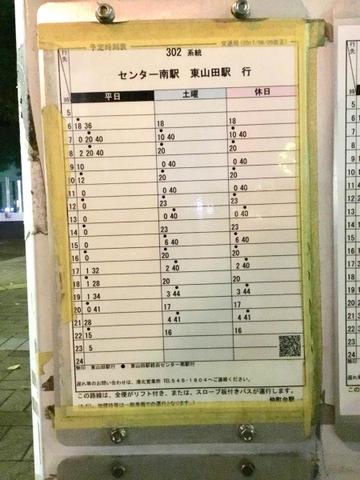 予定時刻表 交通局 (2017/08/09改正)
行先
302 系統
センター南駅 東山田駅 行
時 平日 土曜 休日
5
6 18 36 18 18
7 0 20 40 10 40 10 40
8 2 20 40 20 20
9 10 0 40 0 40
10 12 20 20
11 0 0 40 0 40
12 0 23 23
13 0 0 40 0 40
14 0 23 23
15 0 6 40 6 40
16 0 20 20
17 1 32 2 40 2 40
18 1 28 20 20
19 1 34 3 44 3 44
20 0 41 17 17
21 28 4 41 4 41
22 15 16 16
23 5
24
無印 東山田駅行 ● 東山田駅経由センター南駅行
遅れ等のお問い合わせは、港北営業所 TEL545-1804へご連絡ください。
この路線は、全便がリフト付き、または、スロープ板付きバスが運行します。
仲町台駅